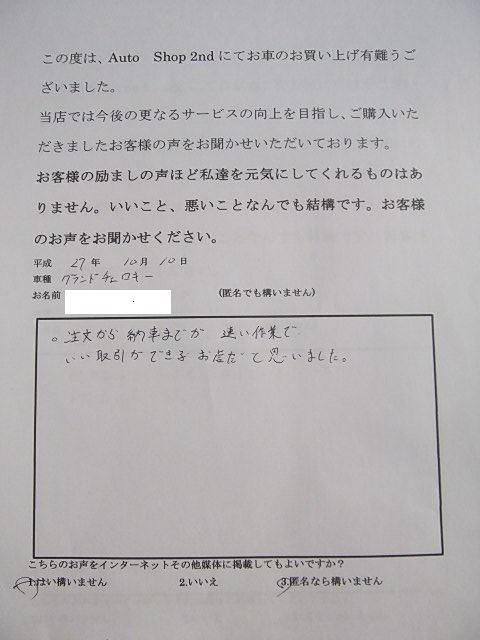 この度は、Auto Shop 2nd にてお車のお買い上げ有難うご
ざいました。
当店では今後の更なるサービスの向上を目指し、ご購入いた
だきましたお客様の声をお聞かせいただいております。
お客様の励ましの声ほど私達を元気にしてくれるものはあ
りません。いいこと、悪いことなんでも結構です。お客様
のお声をお聞かせください。
平成 27 年 10 月 10 日
車種 グランドチェロキー
お名前 (匿名でも構いません)
。注文から納車までが 速い作業で
いい取引ができるお店だと思いました。
こちらのお声をインターネットその他媒体に掲載してもよいですか？
1.はい構いません 2.いいえ 3.匿名なら構いません